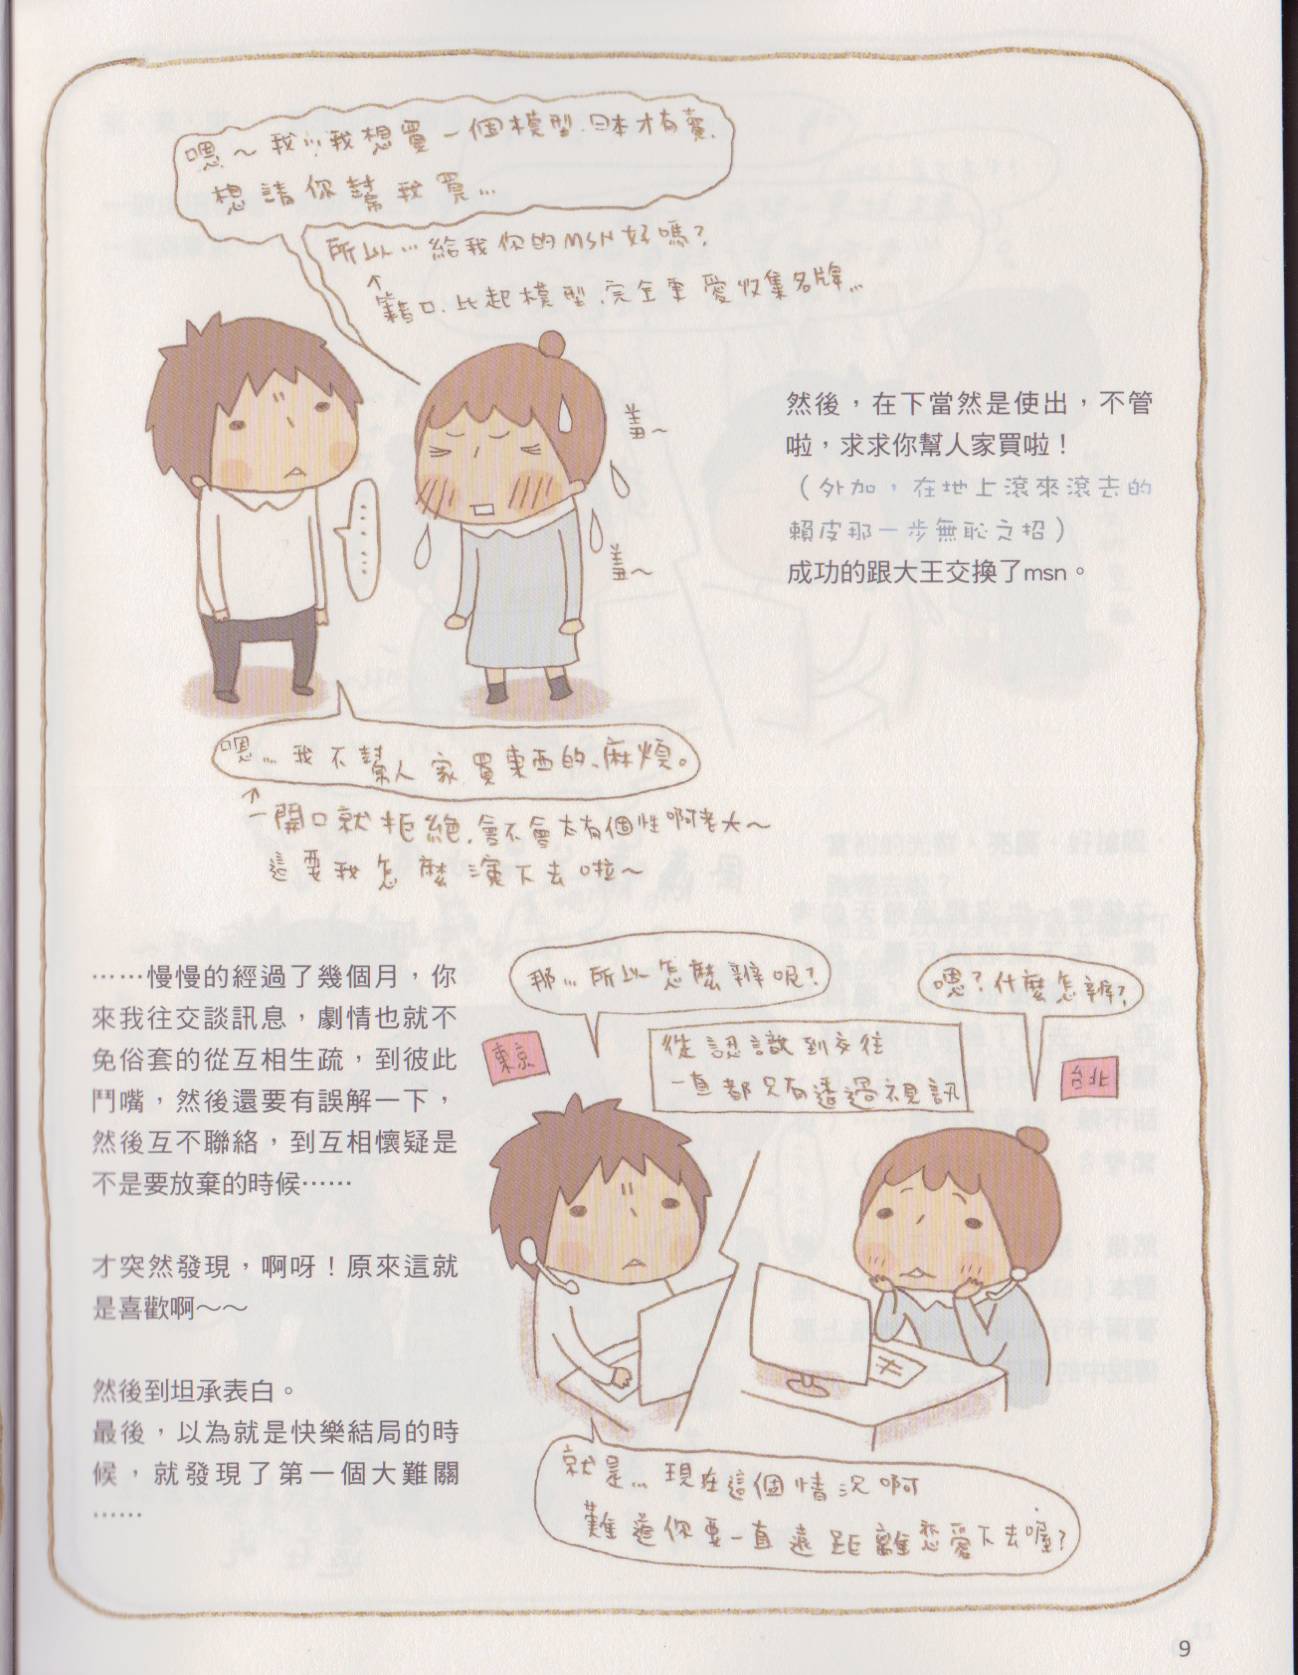 嗯～我...我想買一個模型.日本才有賣.
想請你幫我買...
所以...給我你的MSN好嗎?
↑
藉口.比起模型.完全更愛收集名牌...
羞～
羞～
………
然後，在下當然是使出，不管
啦，求求你幫人家買啦！
（外加，在地上滾來滾去的
賴皮那一步無恥之招）
成功的跟大王交換了msn。
嗯...我不幫人家買東西的、麻煩。
↑
一開口就拒絕.會不會太有個性啊老大～
這要我怎麼演下去啦～
……慢慢的經過了幾個月，你
來我往交談訊息，劇情也就不
免俗套的從互相生疏，到彼此
鬥嘴，然後還要有誤解一下，
然後互不聯絡，到互相懷疑是
不是要放棄的時候……
才突然發現，啊呀！原來這就
是喜歡啊～～
然後到坦承表白。
最後，以為就是快樂結局的時
候，就發現了第一個大難關
……
那...所以怎麼辦呢?
嗯?什麼怎辦?
東京
從認識到交往
一直都只有透過視訊
台北
就是...現在這個情況啊
難道你要一直遠距離戀愛下去喔?
9